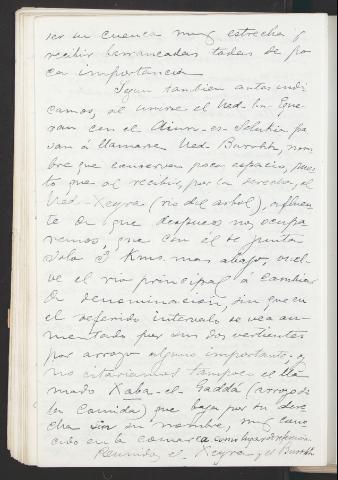 ser su cuenca muy estrecha y
recibir barrancadas todas de po
ca importancia
Segun tambien antes indi
camos, al unirse el Ued
van con el Aiun-es-
van á llamarse Ued nom
bre que conserva poco espacio, pues
to que al recibir, por la derecha, el
Ued-Xeyra (rio del arbol), afluen
te de que despues nos ocupa
remos, que con el se junta
solo 3 Kms. mas abajo, vuel
ve el rio principal á cambiar
de denominacion, sin que en
el referido intervalo se vea au
mentado por sus dos vertientes
por arroyo alguno importante y
no citariamos tampoco el lla
mado Xaba-el-Gaddá (arroyo de
la Comida) que baja por su dere
cha sin su nombre, muy cono
cido en la comarca como lugar de
Reunidos el Xeyra y el